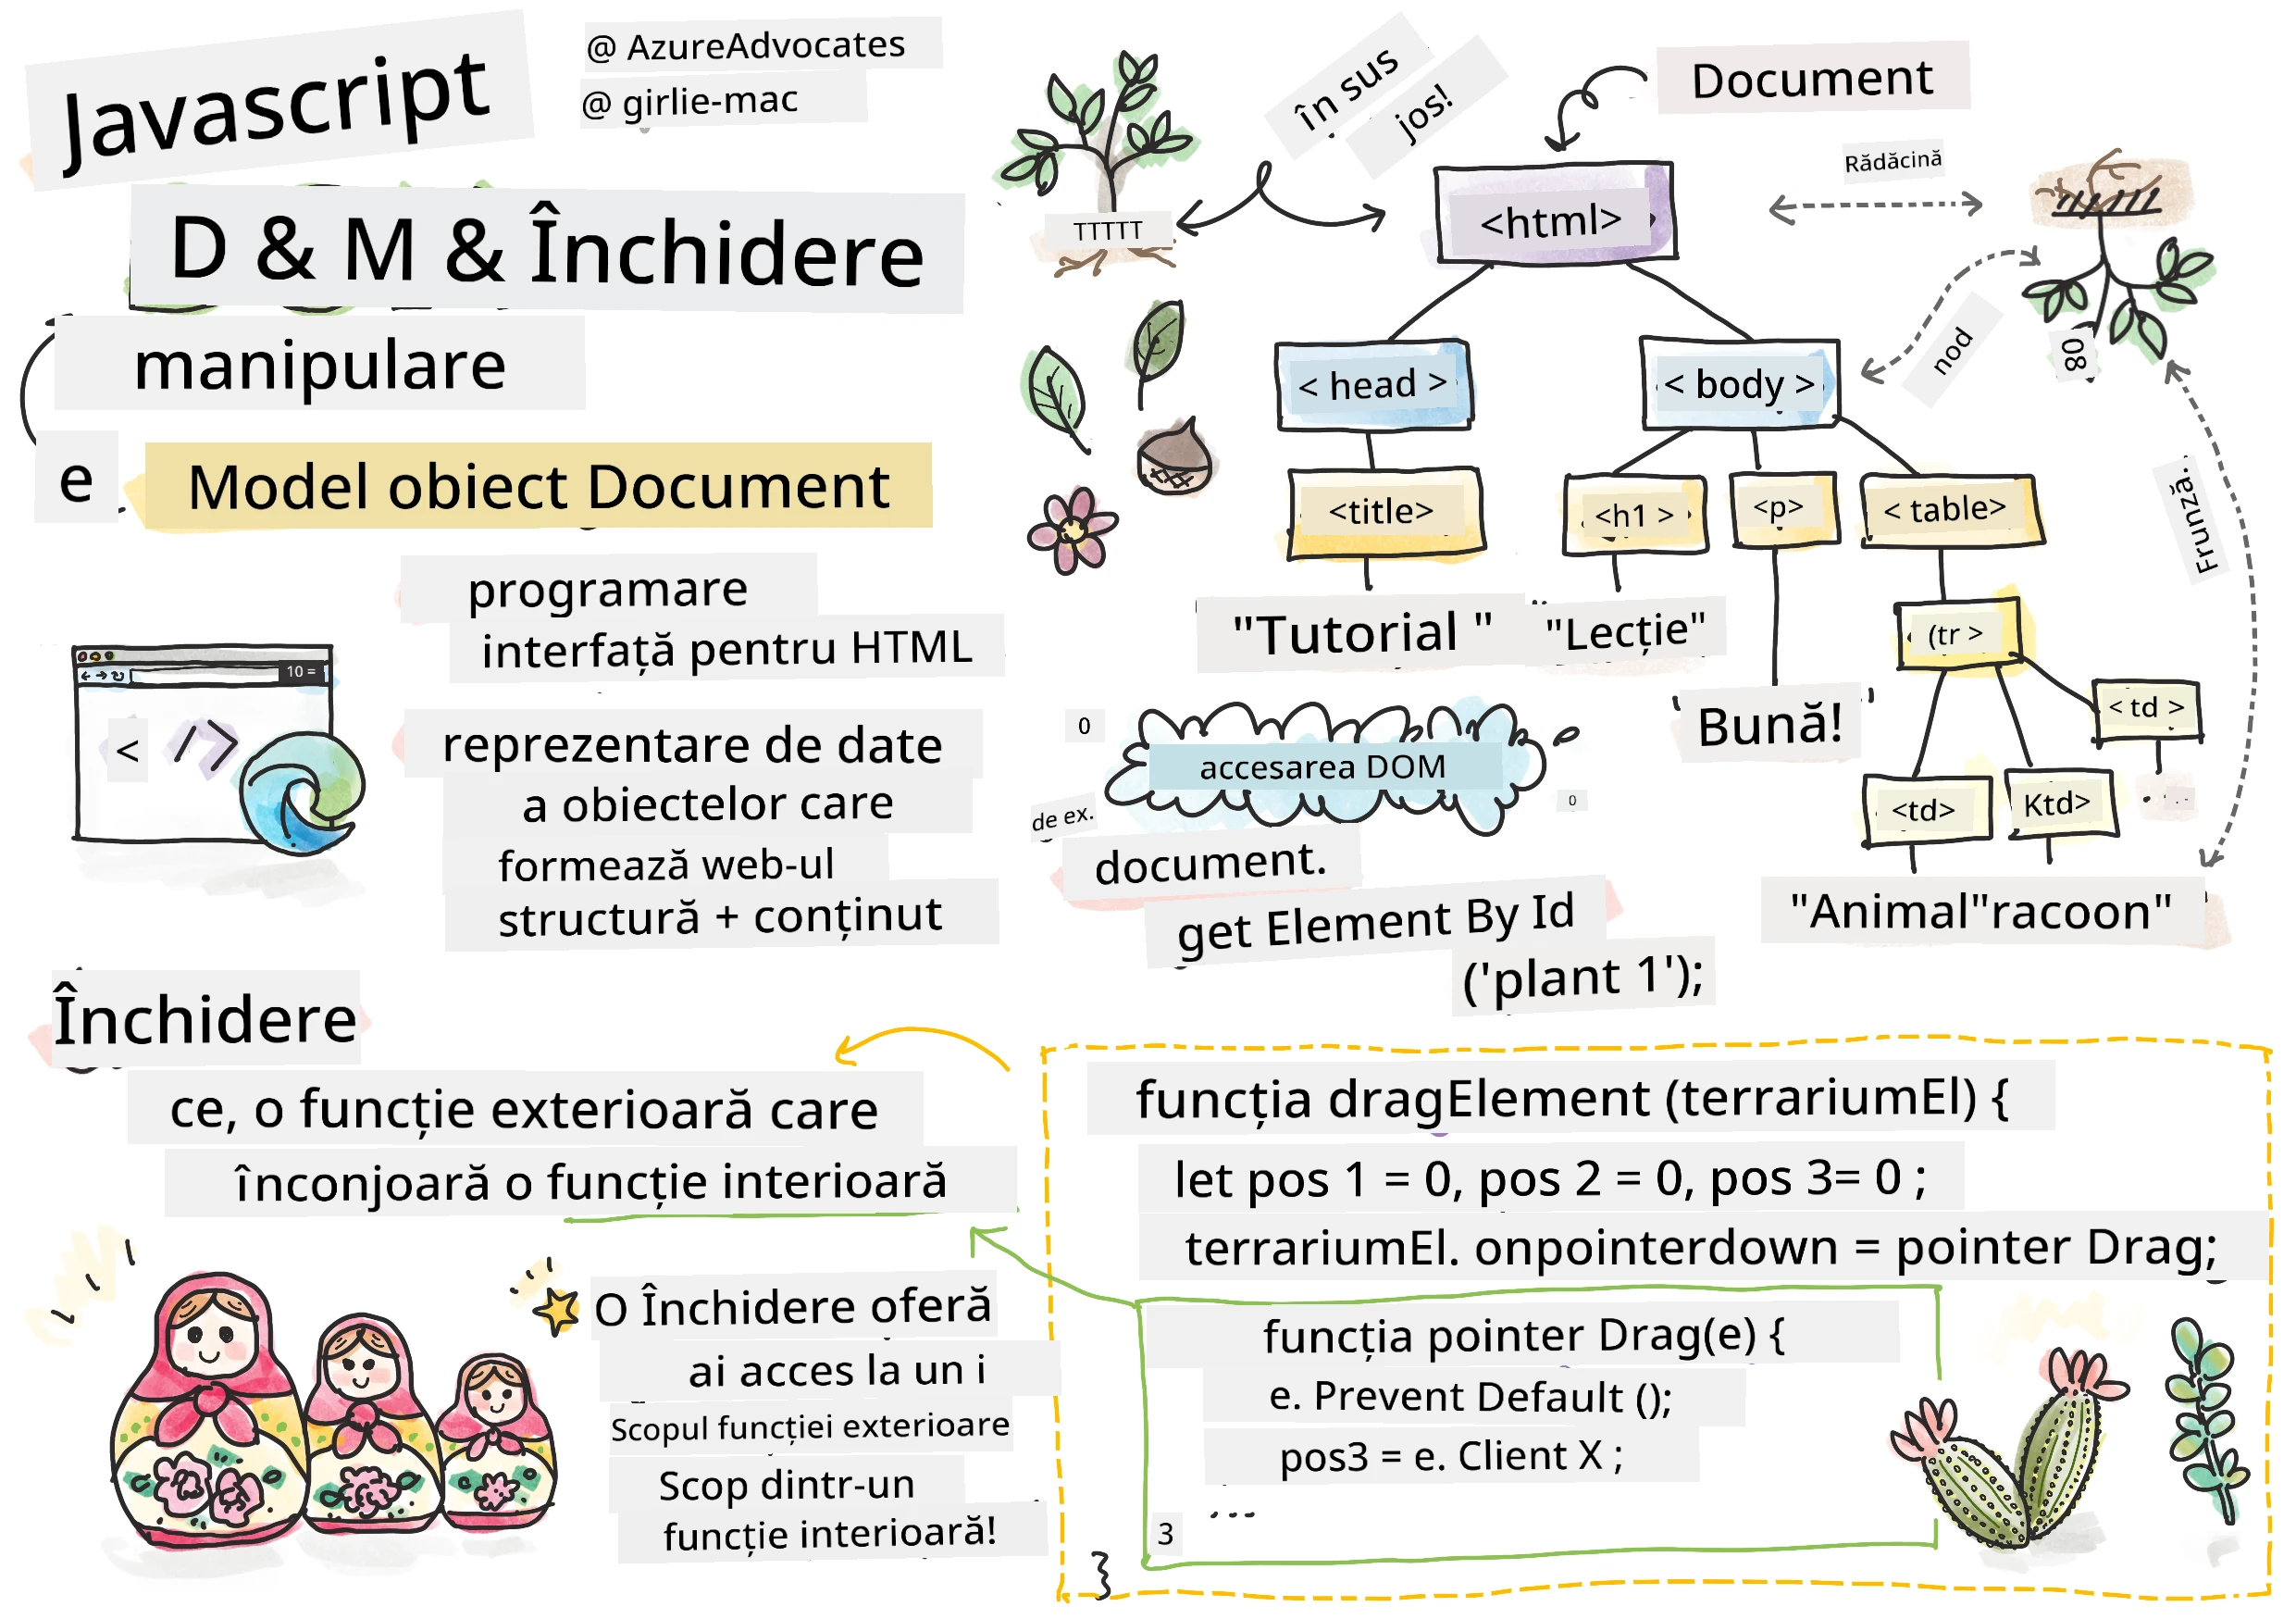 Javascript
@ AzureAdvocates
@ girlie-mac
D & M & Închidere
manipulare
e
Model obiect Document
programare
interfață pentru HTML
10 =
< />
reprezentare de date
a obiectelor care
formează web-ul
structură + conținut
în sus
jos!
Document
TTTTT
<html>
Rădăcină
nod
08
Frunză.
< head >
< body >
<title>
<h1 >
<p>
< table>
"Tutorial "
"Lecție"
(tr >
Bună!
< td >
<td>
Ktd>
...
"Animal"racoon"
0
accesarea DOM
0
de ex.
document.
get Element By Id
('plant 1');
Închidere
ce, o funcție exterioară care
înconjoară o funcție interioară
O Închidere oferă
ai acces la un i
Scopul funcției exterioare
Scop dintr-un
funcție interioară!
funcția dragElement (terrariumEl) {
let pos 1 = 0, pos 2 = 0, pos 3= 0 ;
terrariumEl. onpointerdown = pointer Drag;
funcția pointer Drag(e) {
e. Prevent Default ();
pos3 = e. Client X ;
...
3
}